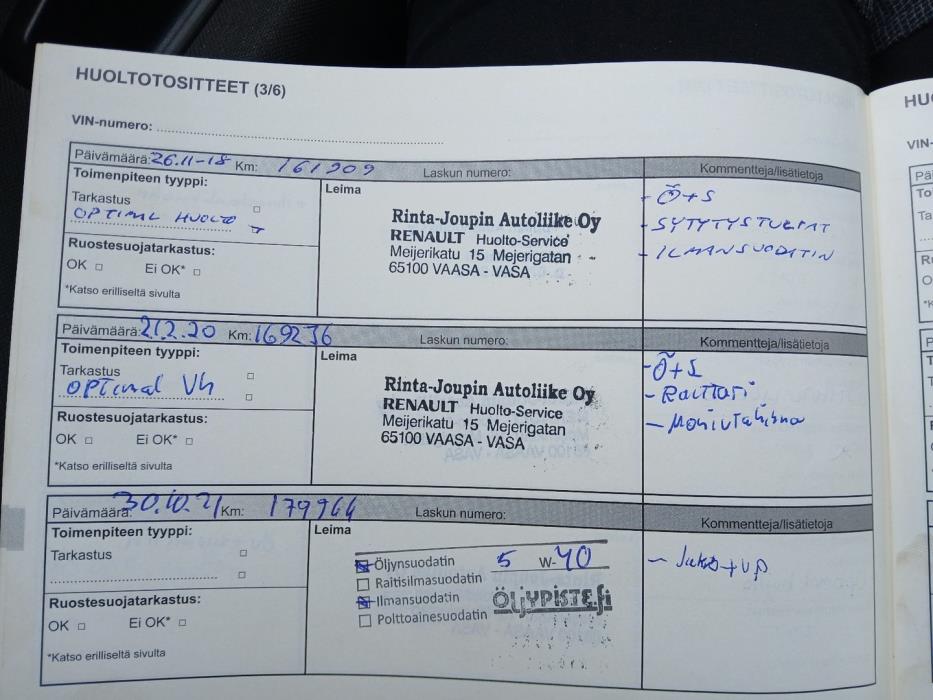 HUOLTOTOSITTEET (3/6)
VIN-numero:
Päivämäärä: 26.11-18 Km: 161909 Laskun numero: Kommentteja/lisätietoja
Toimenpiteen tyyppi:
Tarkastus
OPTIMAL HUOLTO
Ruostesuojatarkastus:
OK Ei OK*
*Katso erilliseltä sivulta
Leima
Rinta-Joupin Autoliike Oy
RENAULT Huolto-Service
Meijerikatu 15 Mejerigatan
65100 VAASA - VASA
- Ö+S
- SYTYTYSTULPAT
- ILMANSUODATIN
Päivämäärä: 21.2.20 Km: 169236 Laskun numero: Kommentteja/lisätietoja
Toimenpiteen tyyppi:
Tarkastus
OPTimal Vh
Ruostesuojatarkastus:
OK Ei OK*
*Katso erilliseltä sivulta
Leima
Rinta-Joupin Autoliike Oy
RENAULT Huolto-Service
Meijerikatu 15 Mejerigatan
65100 VAASA - VASA
- Ö+S
- Raittari
- Moniurahihna
Päivämäärä: 30.10.21 Km: 179964 Laskun numero: Kommentteja/lisätietoja
Toimenpiteen tyyppi:
Tarkastus
Ruostesuojatarkastus:
OK Ei OK*
*Katso erilliseltä sivulta
Leima
Öljynsuodatin 5 W-40
Raitisilmasuodatin
Ilmansuodatin ÖLJYPISTE.fi
Polttoainesuodatin
- Jako+v.p
HU
VIN-